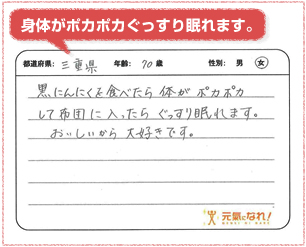 身体がポカポカぐっすり眠れます。
都道府県: 三重県 年齢: 70 歳 性別: 男 女
黒にんにくを食べたら体がポカポカ
して布団に入ったらぐっすり眠れます。
おいしいから大好きです。
元氣になれ!
GENKI NI NARE